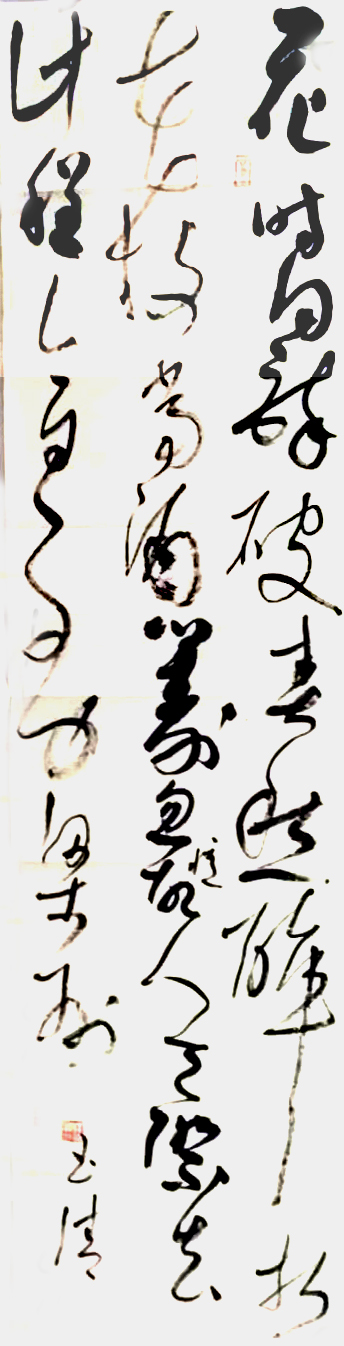 花时同醉破春愁醉折
花枝当酒筹忽忆故人天际去
计程今日到梁州 玉清